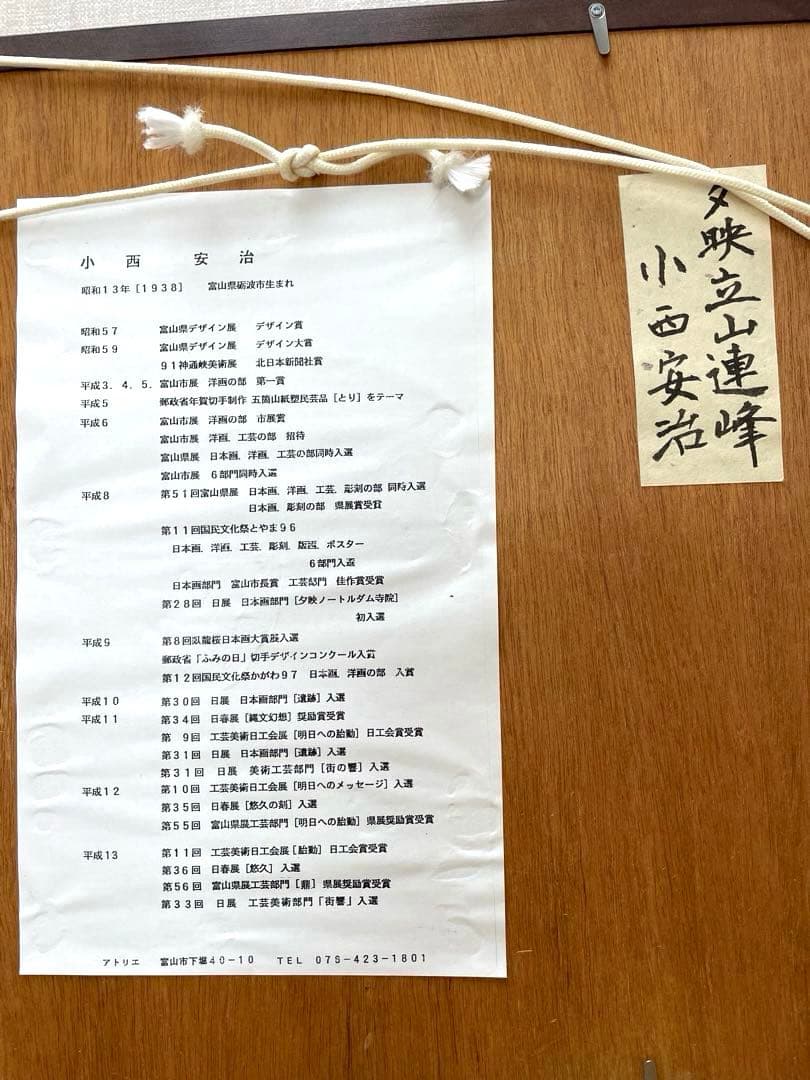 小西 安治
昭和13年［1938］ 富山県砺波市生まれ
昭和57 富山県デザイン展 デザイン賞
昭和59 富山県デザイン展 デザイン大賞
91神通峡美術展 北日本新聞社賞
平成3．4．5．富山市展 洋画の部 第一賞
平成5 郵政省年賀切手制作 五箇山紙塑民芸品［とり］をテーマ
平成6 富山市展 洋画の部 市展賞
富山市展 洋画．工芸の部 招待
富山県展 日本画．洋画．工芸の部同時入選
富山市展 6部門同時入選
平成8 第51回富山県展 日本画．洋画．工芸．彫刻の部 同時入選
日本画．彫刻の部 県展賞受賞
第11回国民文化祭とやま96
日本画．洋画．工芸．彫刻．版画．ポスター
6部門入選
日本画部門 富山市長賞 工芸部門 佳作賞受賞
第28回 日展 日本画部門［夕映ノートルダム寺院］
初入選
平成9 第8回臥龍桜日本画大賞展入選
郵政省「ふみの日」切手デザインコンクール入賞
第12回国民文化祭かがわ97 日本画．洋画の部 入賞
平成10 第30回 日展 日本画部門［遺跡］入選
平成11 第34回 日春展［縄文幻想］奨励賞受賞
第 9回 工芸美術日工会展［明日への胎動］日工会賞受賞
第31回 日展 日本画部門［遺跡］入選
第31回 日展 美術工芸部門［街の響］入選
平成12 第10回 工芸美術日工会展［明日へのメッセージ］入選
第35回 日春展［悠久の刻］入選
第55回 富山県展工芸部門［明日への胎動］県展奨励賞受賞
平成13 第11回 工芸美術日工会展［胎動］日工会賞受賞
第36回 日春展［悠久］入選
第56回 富山県展工芸部門［鼎］県展奨励賞受賞
第33回 日展 工芸美術部門「街響」入選
アトリエ 富山市下堀40-10 TEL 076-423-1801
夕映立山連峰
小西安治